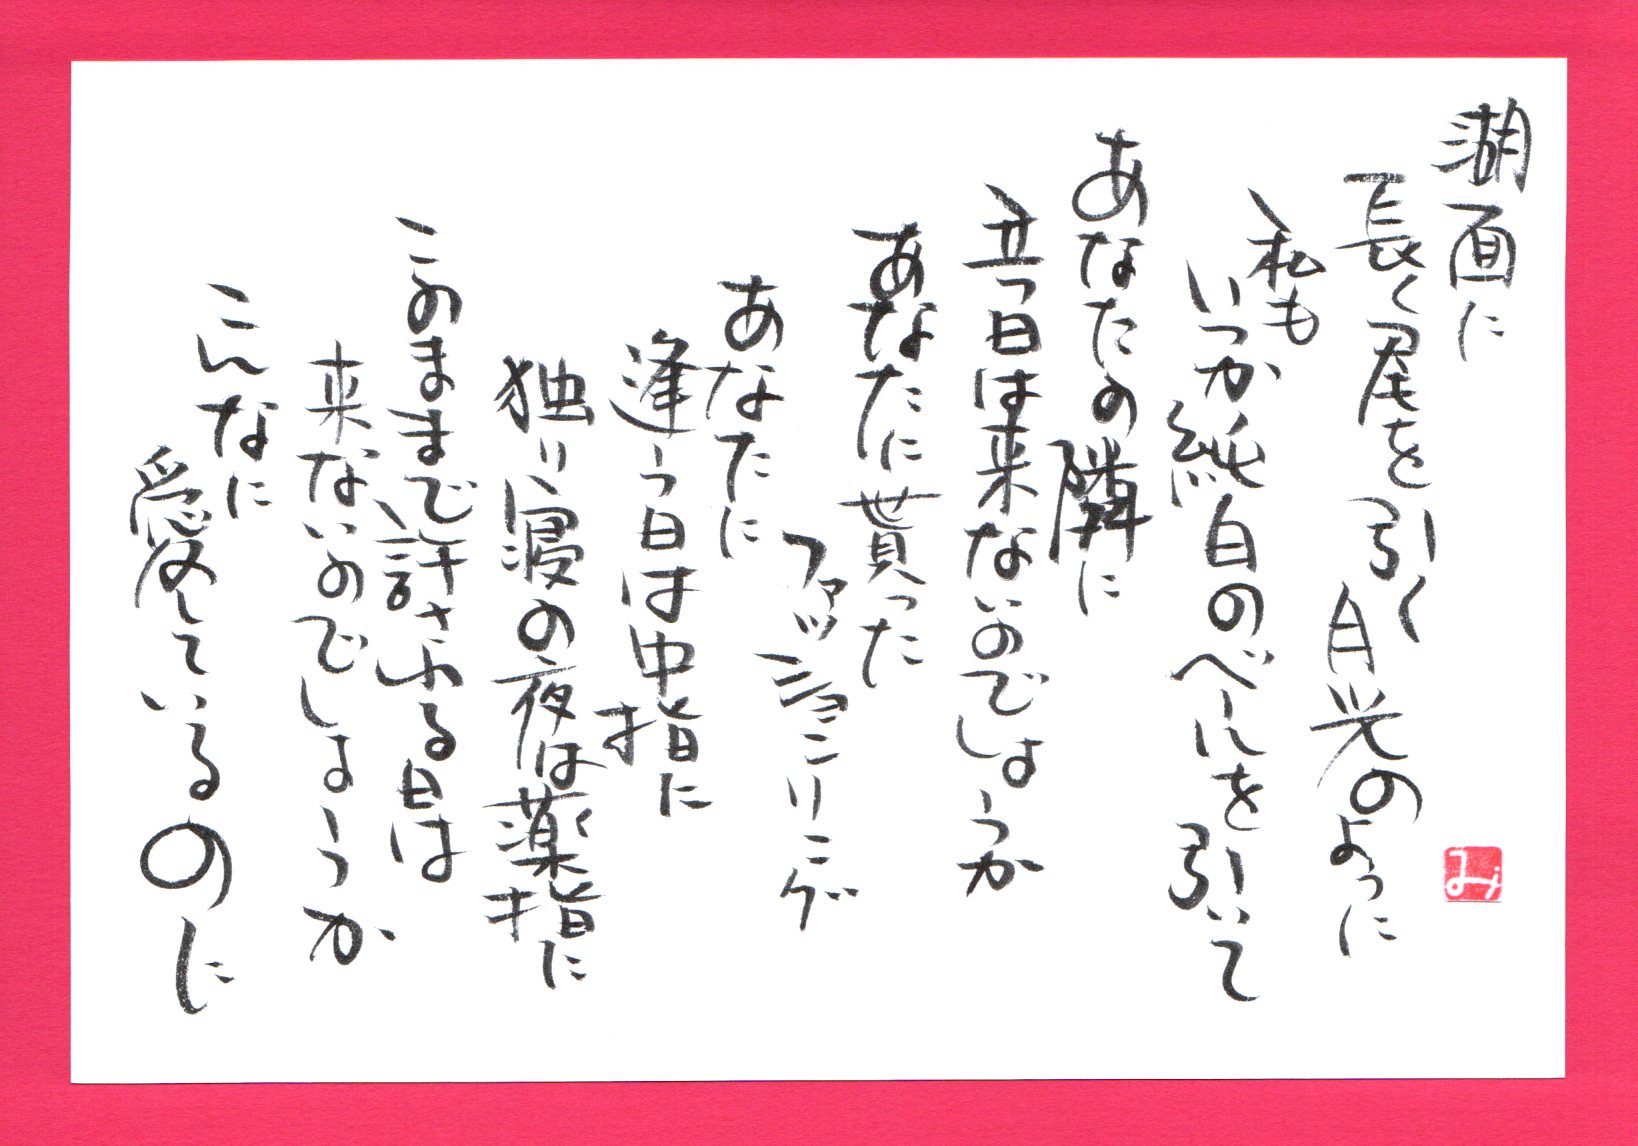 湖面に
長く尾を引く月光のように
私も
いつか純白のベールを引いて
あなたの隣に
立つ日は来ないのでしょうか
あなたに貰った
ファッションリング
あなたに
逢う日は中指に
独り寝の夜は薬指に
このままで許される日は
来ないのでしょうか
こんなに
愛しているのに
み